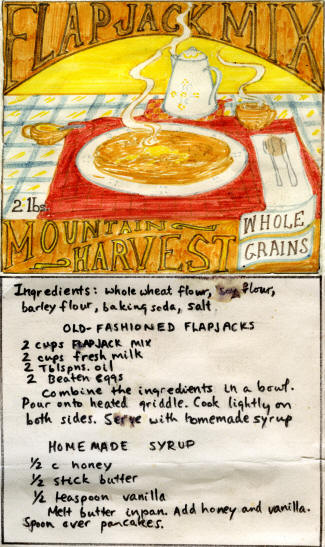 FLAPJACK MIX
2 lbs.
MOUNTAIN
HARVEST
WHOLE
GRAINS
Ingredients: whole wheat flour, soy flour,
barley flour, baking soda, salt
OLD-FASHIONED FLAPJACKS
2 cups FLAPJACK MIX
2 cups fresh milk
2 Tblspns. oil
2 Beaten eggs
Combine the ingredients in a bowl.
Pour onto heated griddle. Cook lightly on
both sides. Serve with homemade syrup
HOMEMADE SYRUP
1/2 c honey
1/2 stick butter
1/2 teaspoon vanilla
Melt butter in pan. Add honey and vanilla.
Spoon over pancakes.